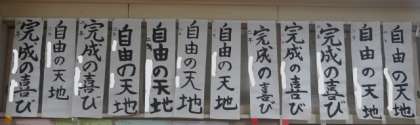 完成の喜び
自由の天地
完成の喜び
自由の天地
自由の天地
自由の天地
自由の天地
完成の喜び
完成の喜び
完成の喜び
自由の天地
自由の天地